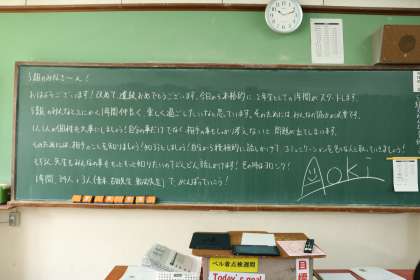 5組のみなさ〜ん!
おはようございます!改めて、進級おめでとうございます。今日から本格的に2年生としての1年間がスタートします。
5組のみんなとにかく1年間仲良く、楽しく過ごしたいなと思っています。そのためには、みんなの協力が必要です。
1人1人の個性を大事にしましょう!自分の事だけでなく、相手の事もしっかり考えないと問題が出てしまいます。
そのためには、相手のことを知りましょう!知ろうとしましょう!自分から積極的に話しかけて、コミュニケーションをとっていきましょう!
もちろん、先生もみんなの事をもっともっと知りたいのでどんどん話しかけます!
1年間、39人+3人
でがんばっていこう!
Aoki
ベル着点検週間
Today's goal
目標